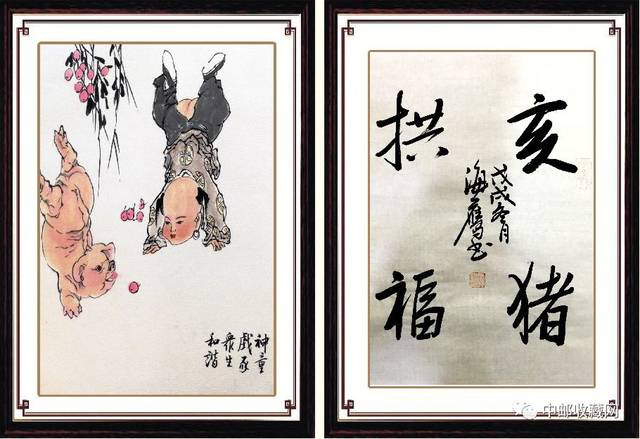 神童
戲豕
衆生
和諧
亥猪
拱福
戊戌冬月
海鹰书
中邮收藏网